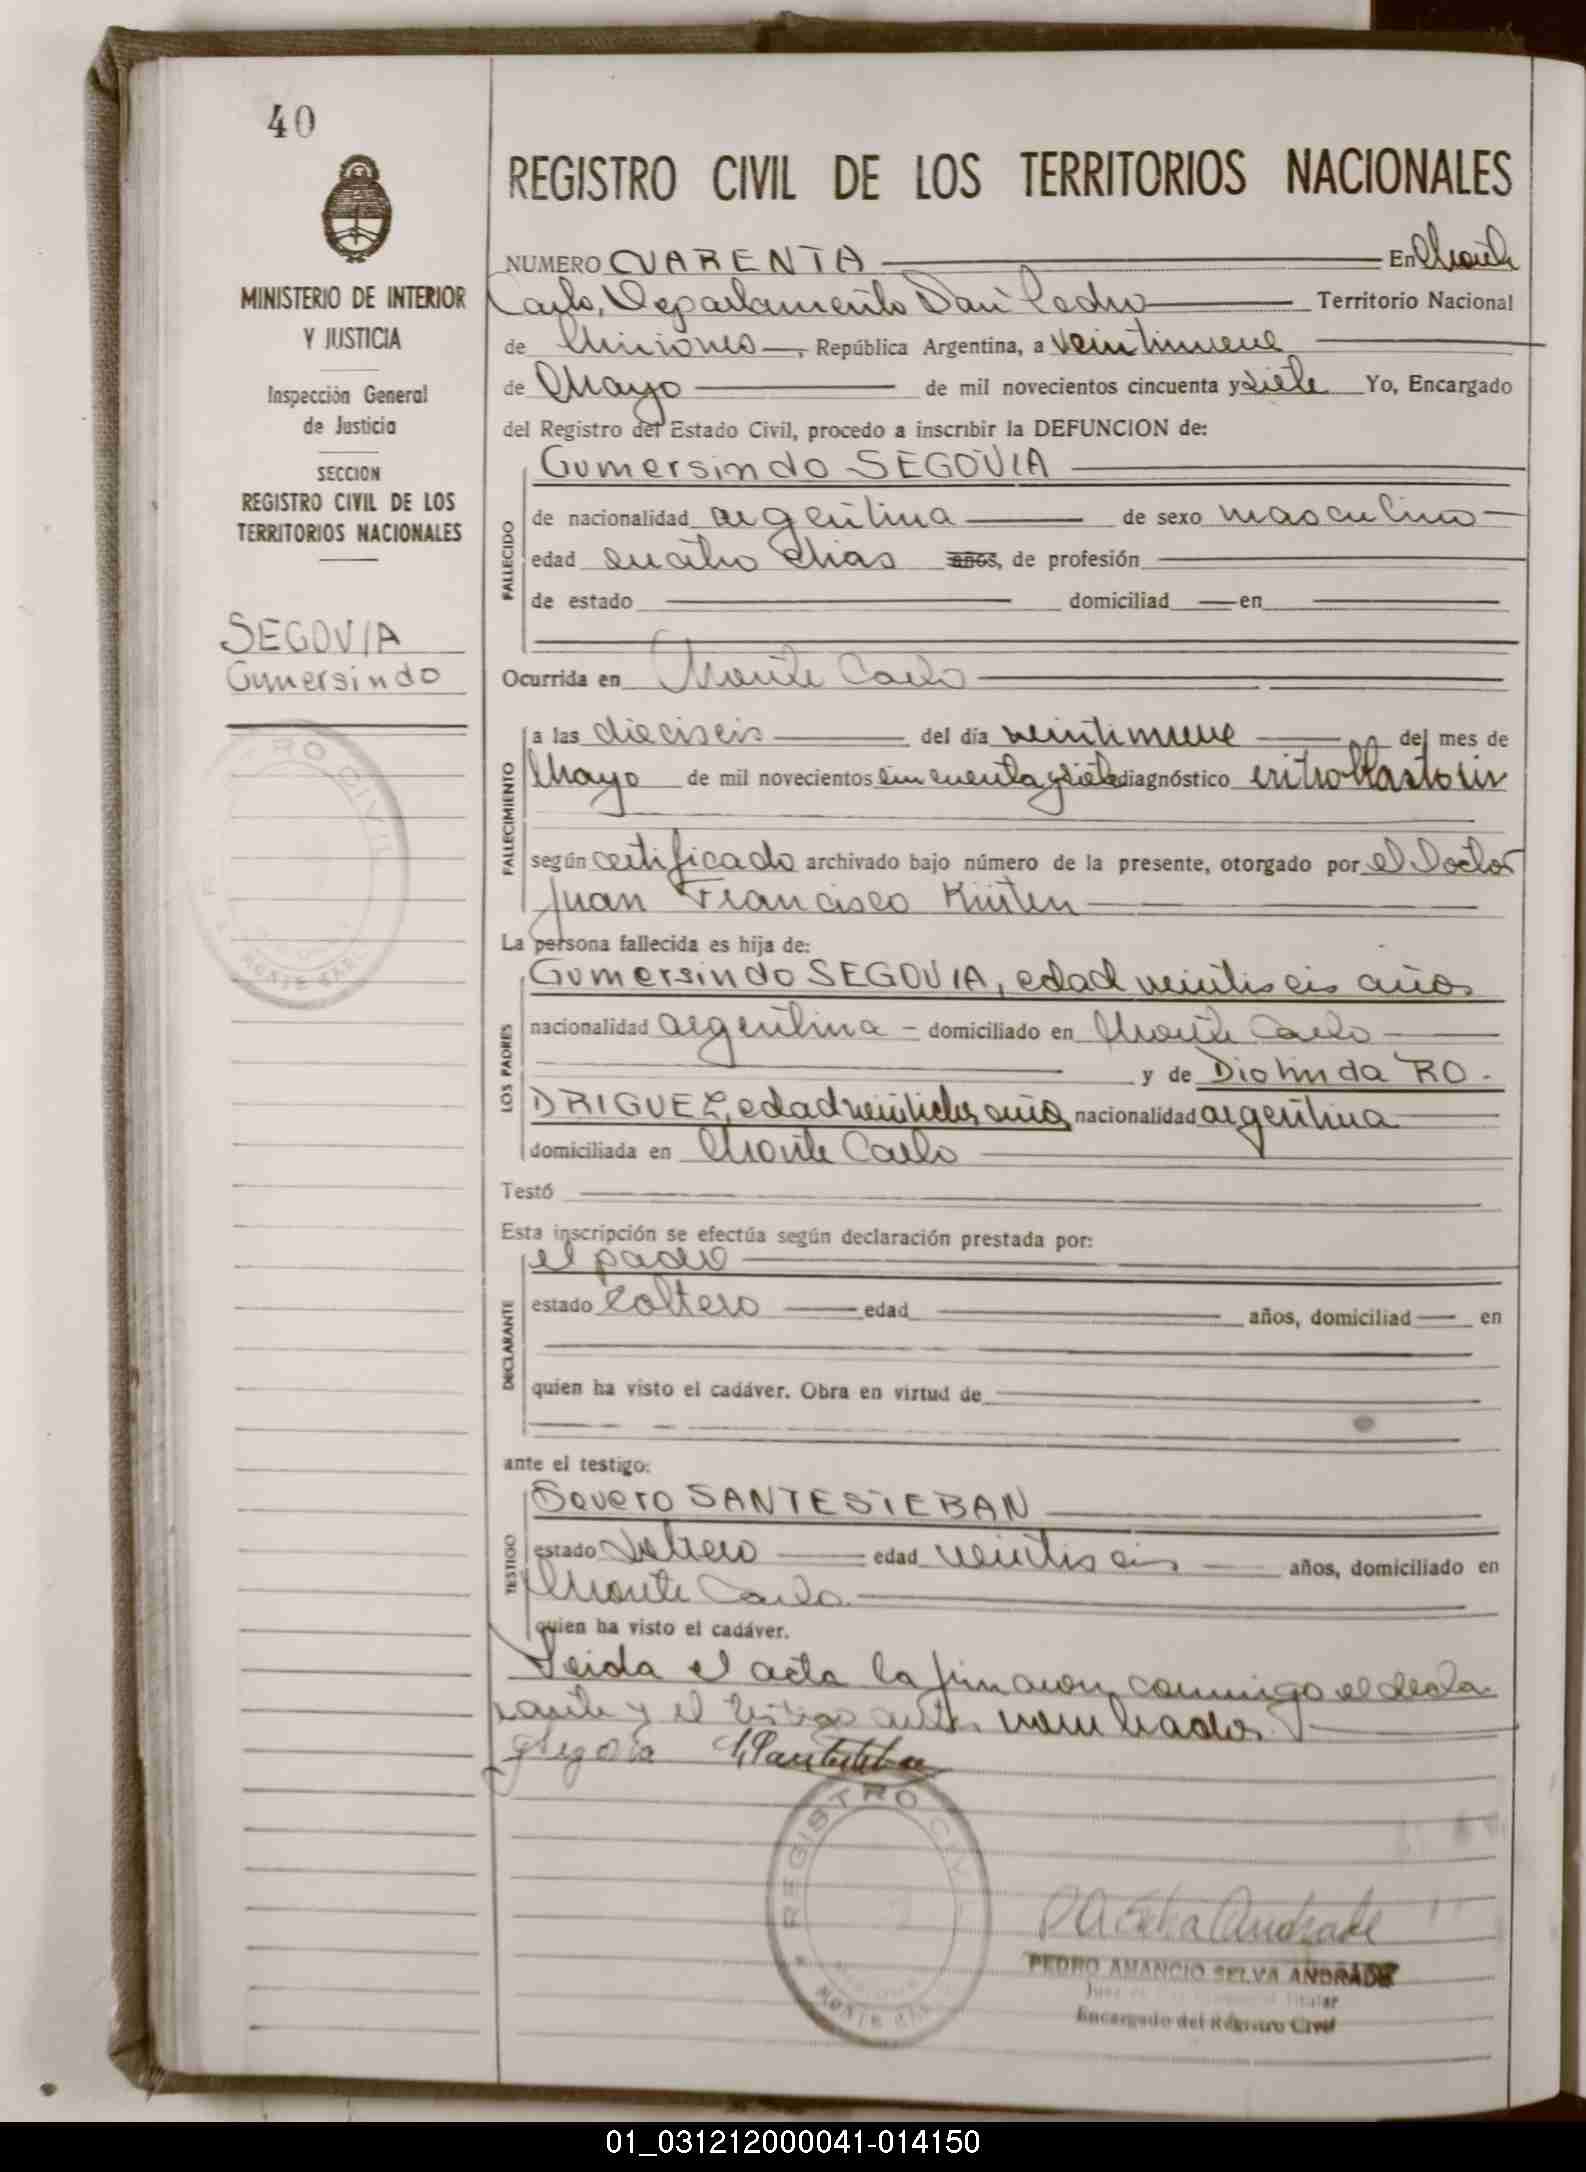 40
MINISTERIO DE INTERIOR
Y JUSTICIA
Inspección General
de Justicia
SECCION
REGISTRO CIVIL DE LOS
TERRITORIOS NACIONALES
SEGOVIA
Gumersindo
REGISTRO CIVIL DE LOS TERRITORIOS NACIONALES
NUMERO CUARENTA En Monte
Carlo, Departamento San Pedro Territorio Nacional
de Misiones, República Argentina, a veintinueve
de Mayo de mil novecientos cincuenta y siete Yo, Encargado
del Registro del Estado Civil, procedo a inscribir la DEFUNCION de:
FALLECIDO
Gumersindo SEGOVIA
de nacionalidad argentina de sexo masculino
edad cuatro dias años, de profesión
de estado domiciliad en
Ocurrida en Monte Carlo
FALLECIMIENTO
a las dieciseis del día veintinueve del mes de
Mayo de mil novecientos cincuenta y siete diagnóstico eritroblastosis
según certificado archivado bajo número de la presente, otorgado por el Doctor
Juan Francisco Kürten
La persona fallecida es hija de:
LOS PADRES
Gumersindo SEGOVIA, edad veintiseis años
nacionalidad argentina domiciliado en Monte Carlo
y de Diolinda RO-
DRIGUEZ, edad años nacionalidad argentina
domiciliada en Monte Carlo
Testó
Esta inscripción se efectúa según declaración prestada por:
DECLARANTE
el padre
estado soltero edad años, domiciliad en
quien ha visto el cadáver. Obra en virtud de
ante el testigo:
TESTIGO
Severo SANTESTEBAN
estado soltero edad veintiseis años, domiciliado en
Monte Carlo
quien ha visto el cadáver.
Leida el acta la firmaron conmigo el decla-
rante y el testigo antes nombrados.
REGISTRO CIVIL
MONTE CARLO
PEDRO AMANCIO SELVA ANDRADE
Titular
Encargado del Registro Civil
01_031212000041-014150